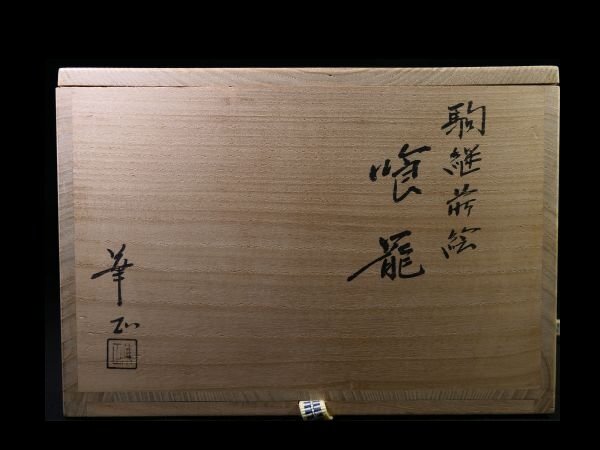 駒継蒔絵
喰籠
華